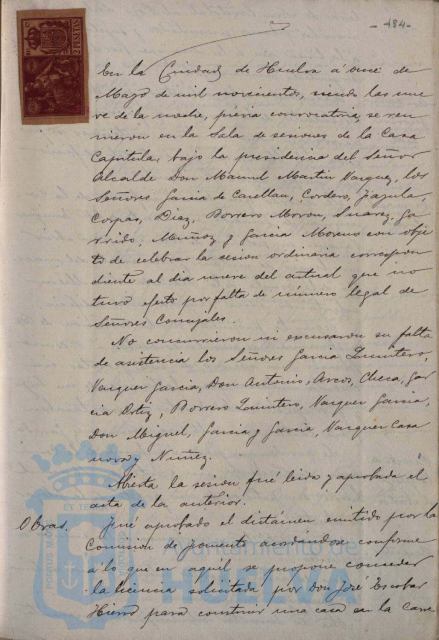 -184-
En la Ciudad de Huelva á once de
Mayo de mil novecientos, siendo las nue
ve de la noche, prévia convocatoria, se reu
nieron en la Sala de sesiones de la Casa
Capitular, bajo la presidencia del Señor
Alcalde Don Manuel Martin Vazquez, los
Señores Garcia de Caxellan, Cordero, Jazula,
Corpas, Diaz, Borrero Morron, Suarez, Ga
rrido, Muñoz y Garcia Moreno con obje
to de celebrar la sesion ordinaria correspon
diente al dia nueve del actual que no
tuvo efecto por falta de número legal de
Señores Concejales.
No concurrieron ni excusaron su falta
de asistencia los Señores Garcia Quintero,
Vazquez Garcia, Don Antonio, Arcos, Checa, Gar
cia Ortiz, Borrero Quintero, Vazquez Garcia,
Don Miguel, Garcia y Garcia, Vazquez Casa
nova y Nuñez.
Abierta la sesion fué leida y aprobada el
acta de la anterior.
Obras. Fué aprobado el dictámen emitido por la
Comision de fomento acordandose conforme
á lo que en aquel se propone conceder
la licencia solicitada por Don José Escobar
Hierro para construir una casa en la Carre
Ayuntamiento de
HUELVA